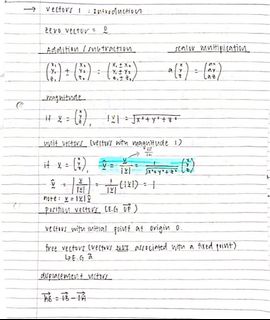 → vectors 1 : introduction
zero vector = 0
addition / subtraction scalar multiplication
(x₁ y₁ z₁) ± (x₂ y₂ z₂) = (x₁ ± x₂ y₁ ± y₂ z₁ ± z₂) a(x y z) = (ax ay az)
magnitude
if v = (x y z), |v| = √x² + y² + z²
unit vectors (vectors with magnitude 1)
if v = (x y z), v̂ = v/|v| = 1/√x² + y² + z² (x y z)
v̂ = |v/|v|| = 1/|v| (|v|) = 1
note: v = |v| v̂
position vectors (E.G OP)
vectors with initial point at origin O.
free vectors (vectors associated with a fixed point)
↳ E.G a
displacement vectors
AB = OB - OA